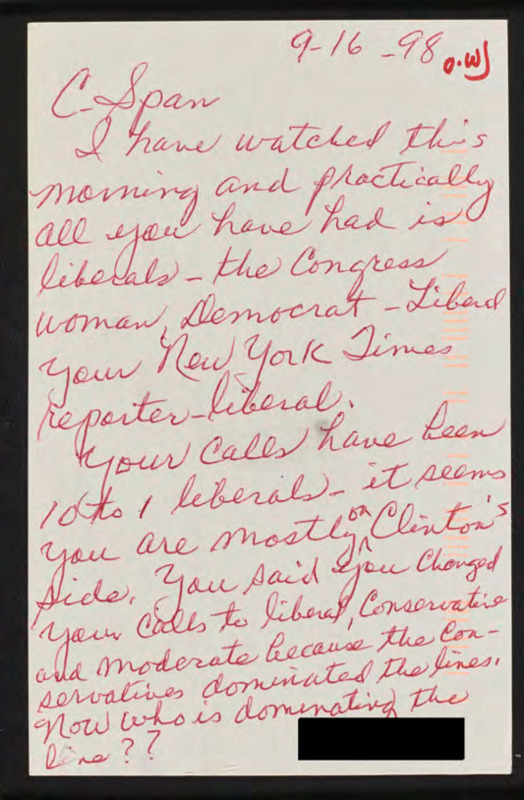 9-16-98 O.W
C-Span
I have watched this
morning and practically
all you have had is
liberals - the Congress
woman, Democrat - Liberal
your New York Times
reporter - liberal.
Your calls have been
10 to 1 liberals - it seems
you are mostly on Clinton's
side. You said you changed
your calls to liberal, Conservative
and moderate because the Con-
servatives dominated the lines.
Now who is dominating the
line??